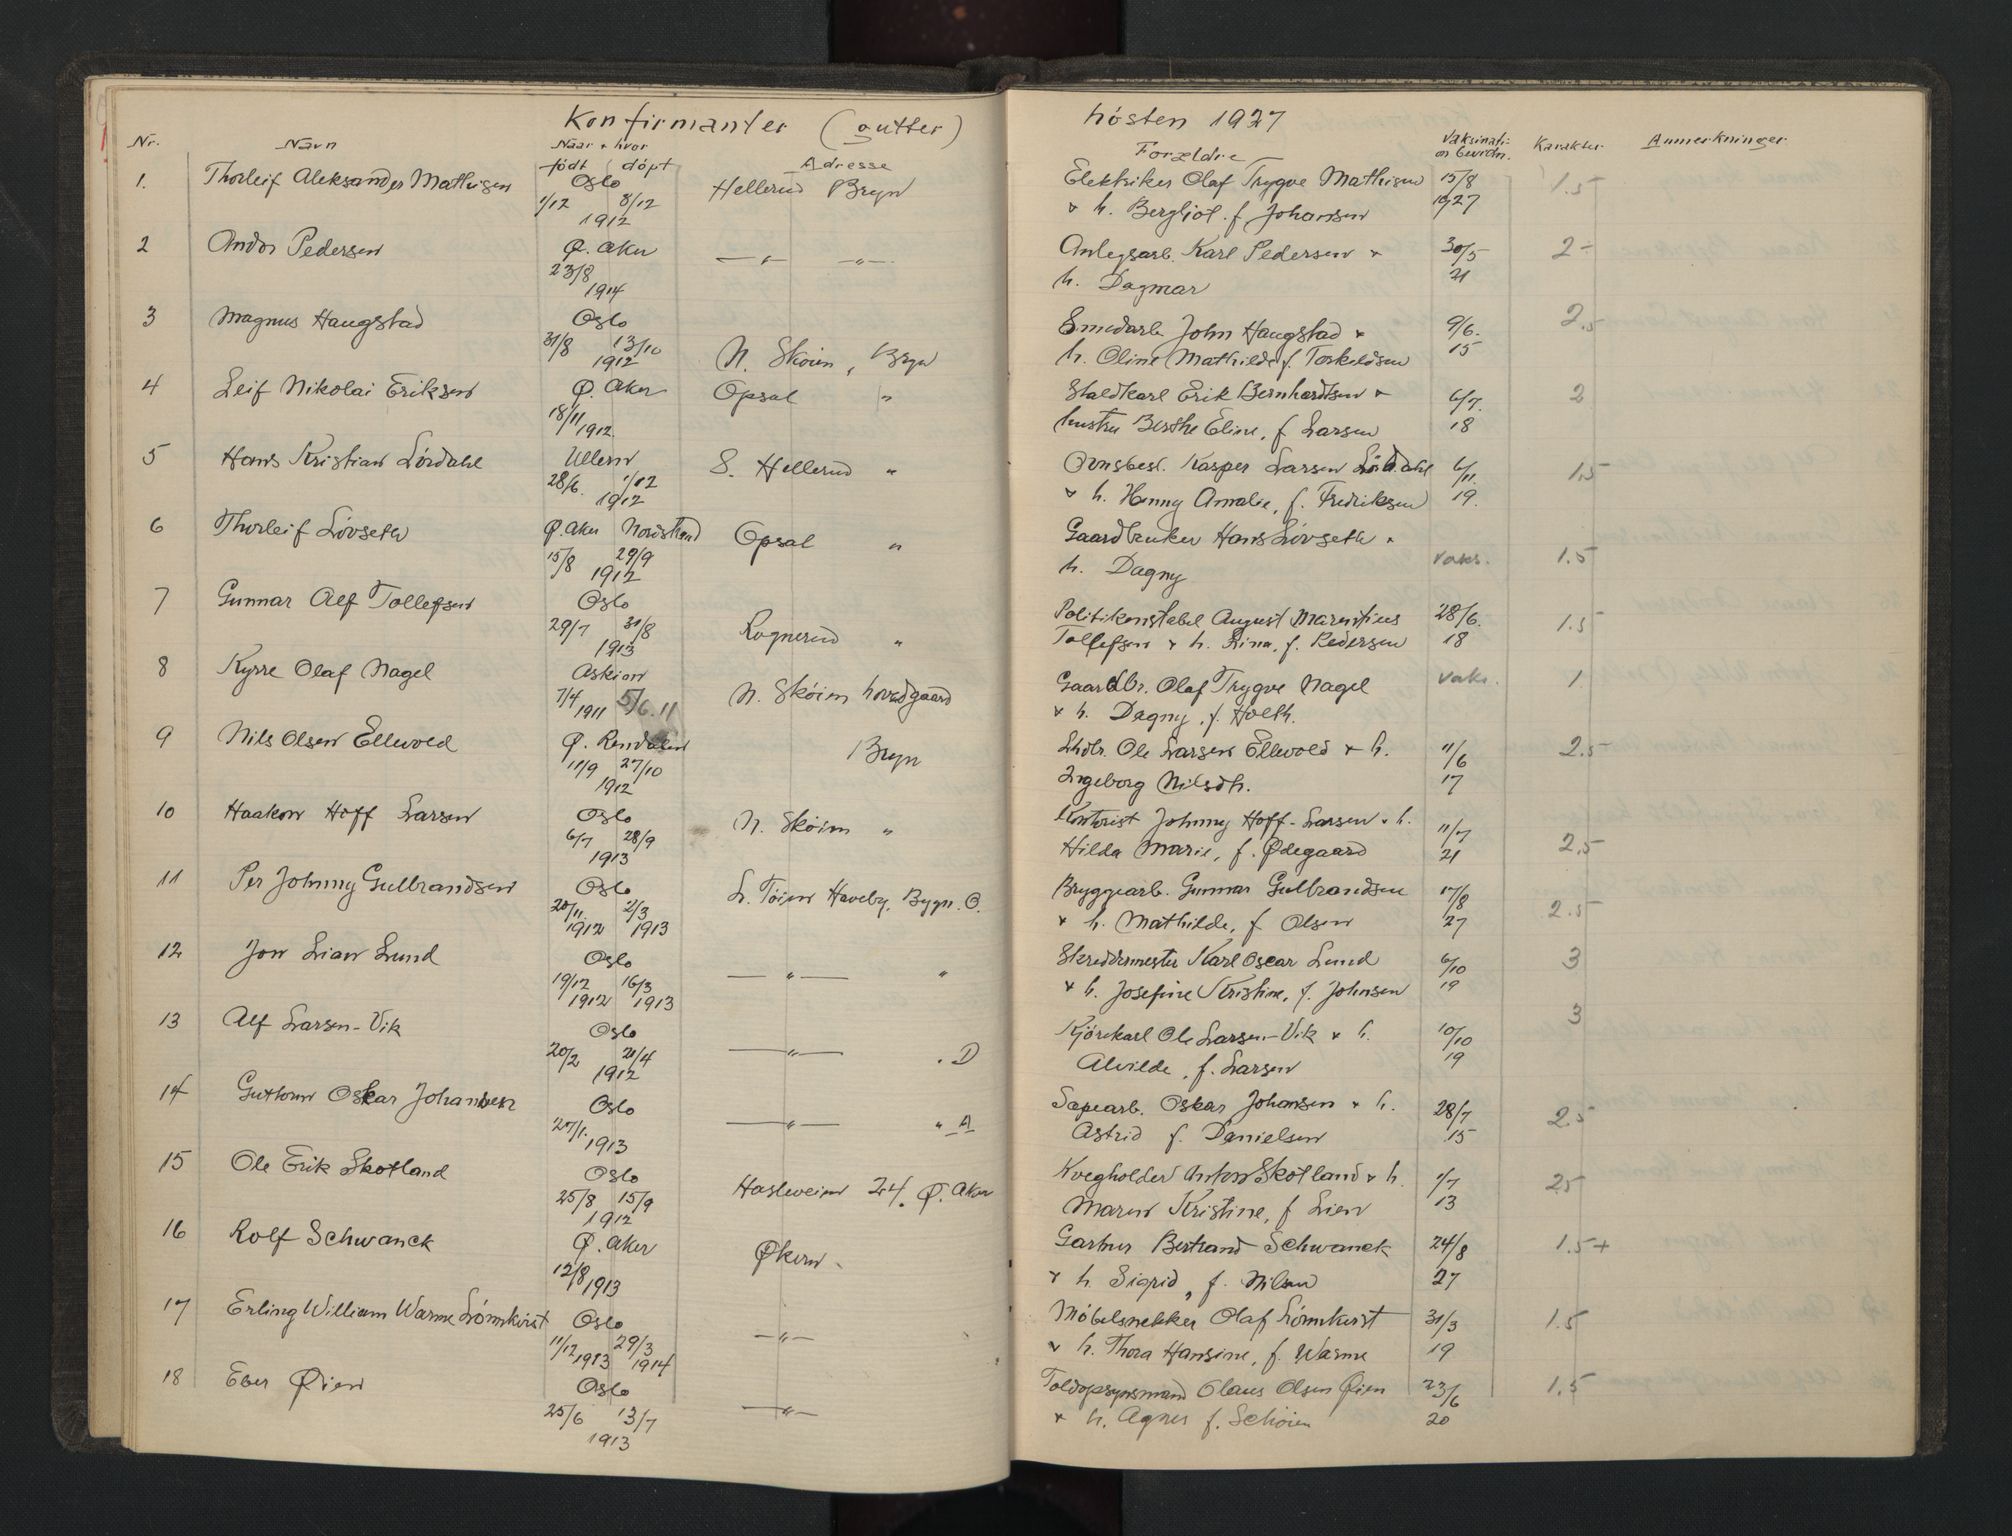 Konfirmanter (gutter) høsten 1927
Nr. Navn Naar + hvor født døpt Adresse Forældre Vaksinati- Karakter Anmerkninger
1. Thorleif Aleksander Mathisen Oslo Hellerud Bryn Elektriker Olaf Trygve Mathisen 15/8 1.5
1/12 8/12 1912 + h. Bergliot f. Johansen 1927
2 Andor Pedersen Ø. Aker —〃— —〃— Anlegsarb. Karl Pedersen + 30/5 2-
23/8 1914 h. Dagmar 21
3 Magnus Haugstad Oslo Smedarb John Haugstad + 9/6. 2.5
31/8 13/10 1912 N. Skøien, Bryn h. Oline Mathilde f. Torkildsen 15
4 Leif Nikolai Eriksen Ø. Aker Opsal 〃 Staldkarl Erik Bernhardtsen + 6/7. 2
18/11 1912. hustru Berthe Eline, f Larsen 18
5 Hans Kristian Lørdahl Ullern S. Hellerud 〃 Kasper Larsen Lørdahl 6/11. 1.5
28/6. 1/12 1912 + h. Henny Amalie, f. Fredriksen 19.
6 Thorleif Løvseth Ø. Aker Nordstrand Opsal 〃 Gaardbruker Hans Løvseth + vaks. 1.5
15/8 29/9 1912 h. Dagny
7 Gunnar Alf Tollefsen Oslo Politikonstabel August Marentius 28/6. 1.5
29/7 31/8 1913 Rognerud 〃 Tollefsen + h. Lina, f. Pedersen 18
8 Kyrre Olaf Nagel Askim N. Skøien hovedgaard Gaardbr. Olaf Trygve Nagel vaks. 1
7/4 1911 5/6. 11 + h. Dagny, f. Holth.
9 Nils Olsen Ellevold Ø. Rendalen Bryn Ole Larsen Ellevold + h. 11/6 2.5
11/9 27/10 1912 Ingeborg Nilsdtr. 17
10 Haakon Hoff Larsen Oslo N. Skøien 〃 Kontorist Johnny Hoff-Larsen + h. 11/7 2.5
6/7 28/9 1913 Hilda Marie, f. Ødegaard 21
11 Per Johnny Gulbrandsen Oslo L. Tøien Haveby, Bygn. C. Bryggearb. Gunnar Gulbrandsen 17/8 2.5
20/11 1912 2/3 1913 + h. Mathilde, f Olsen 27
12 Jon Lian Lund Oslo —〃— 〃 Skreddermester Karl Oscar Lund 6/10 3
19/12 1912 16/3 1913 + h. Josefine Kristine, f. Johnsen 19
13 Alf Larsen-Vik Oslo —〃— 〃 D Kjørekarl Ole Larsen-Vik + h. 10/10 3
20/2 21/4 1912 Alvilde, f. Larsen 19
14 Guthorm Oskar Johansen Oslo —〃— 〃 A Sæpearb. Oskar Johansen + h. 28/7 2.5
27/1. 1913 Astrid f. Danielsen 15
15 Ole Erik Skotland Oslo Hasleveien 24. Ø. Aker Kvegholder Anton Skotland + h. 1/7 25
25/8 15/9 1912 Maren Kristine, f Lien 13
16 Rolf Schwanck Ø. Aker Økern. Gartner Bertrand Schwanck 24/8 1.5+
12/8 1913 + h. Sigrid, f. Nilsen 27
17 Erling William Warme Lønnkvist Oslo —〃— Møbelsnekker Olaf Lønnkvist 31/3 1.5
11/12 1913 29/3 1914 + h. Thora Hansine, f. Warme 19
18 Eber Øien Oslo —〃— Toldopsynsmand Olaus Olsen Øien 23/6 1.5
25/6 13/7 1913 + h. Agnes f. Schøien 20